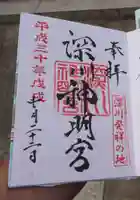 奉拝
深川神明宮
深川発祥の地
平成三十年戊戌
十月二十二日